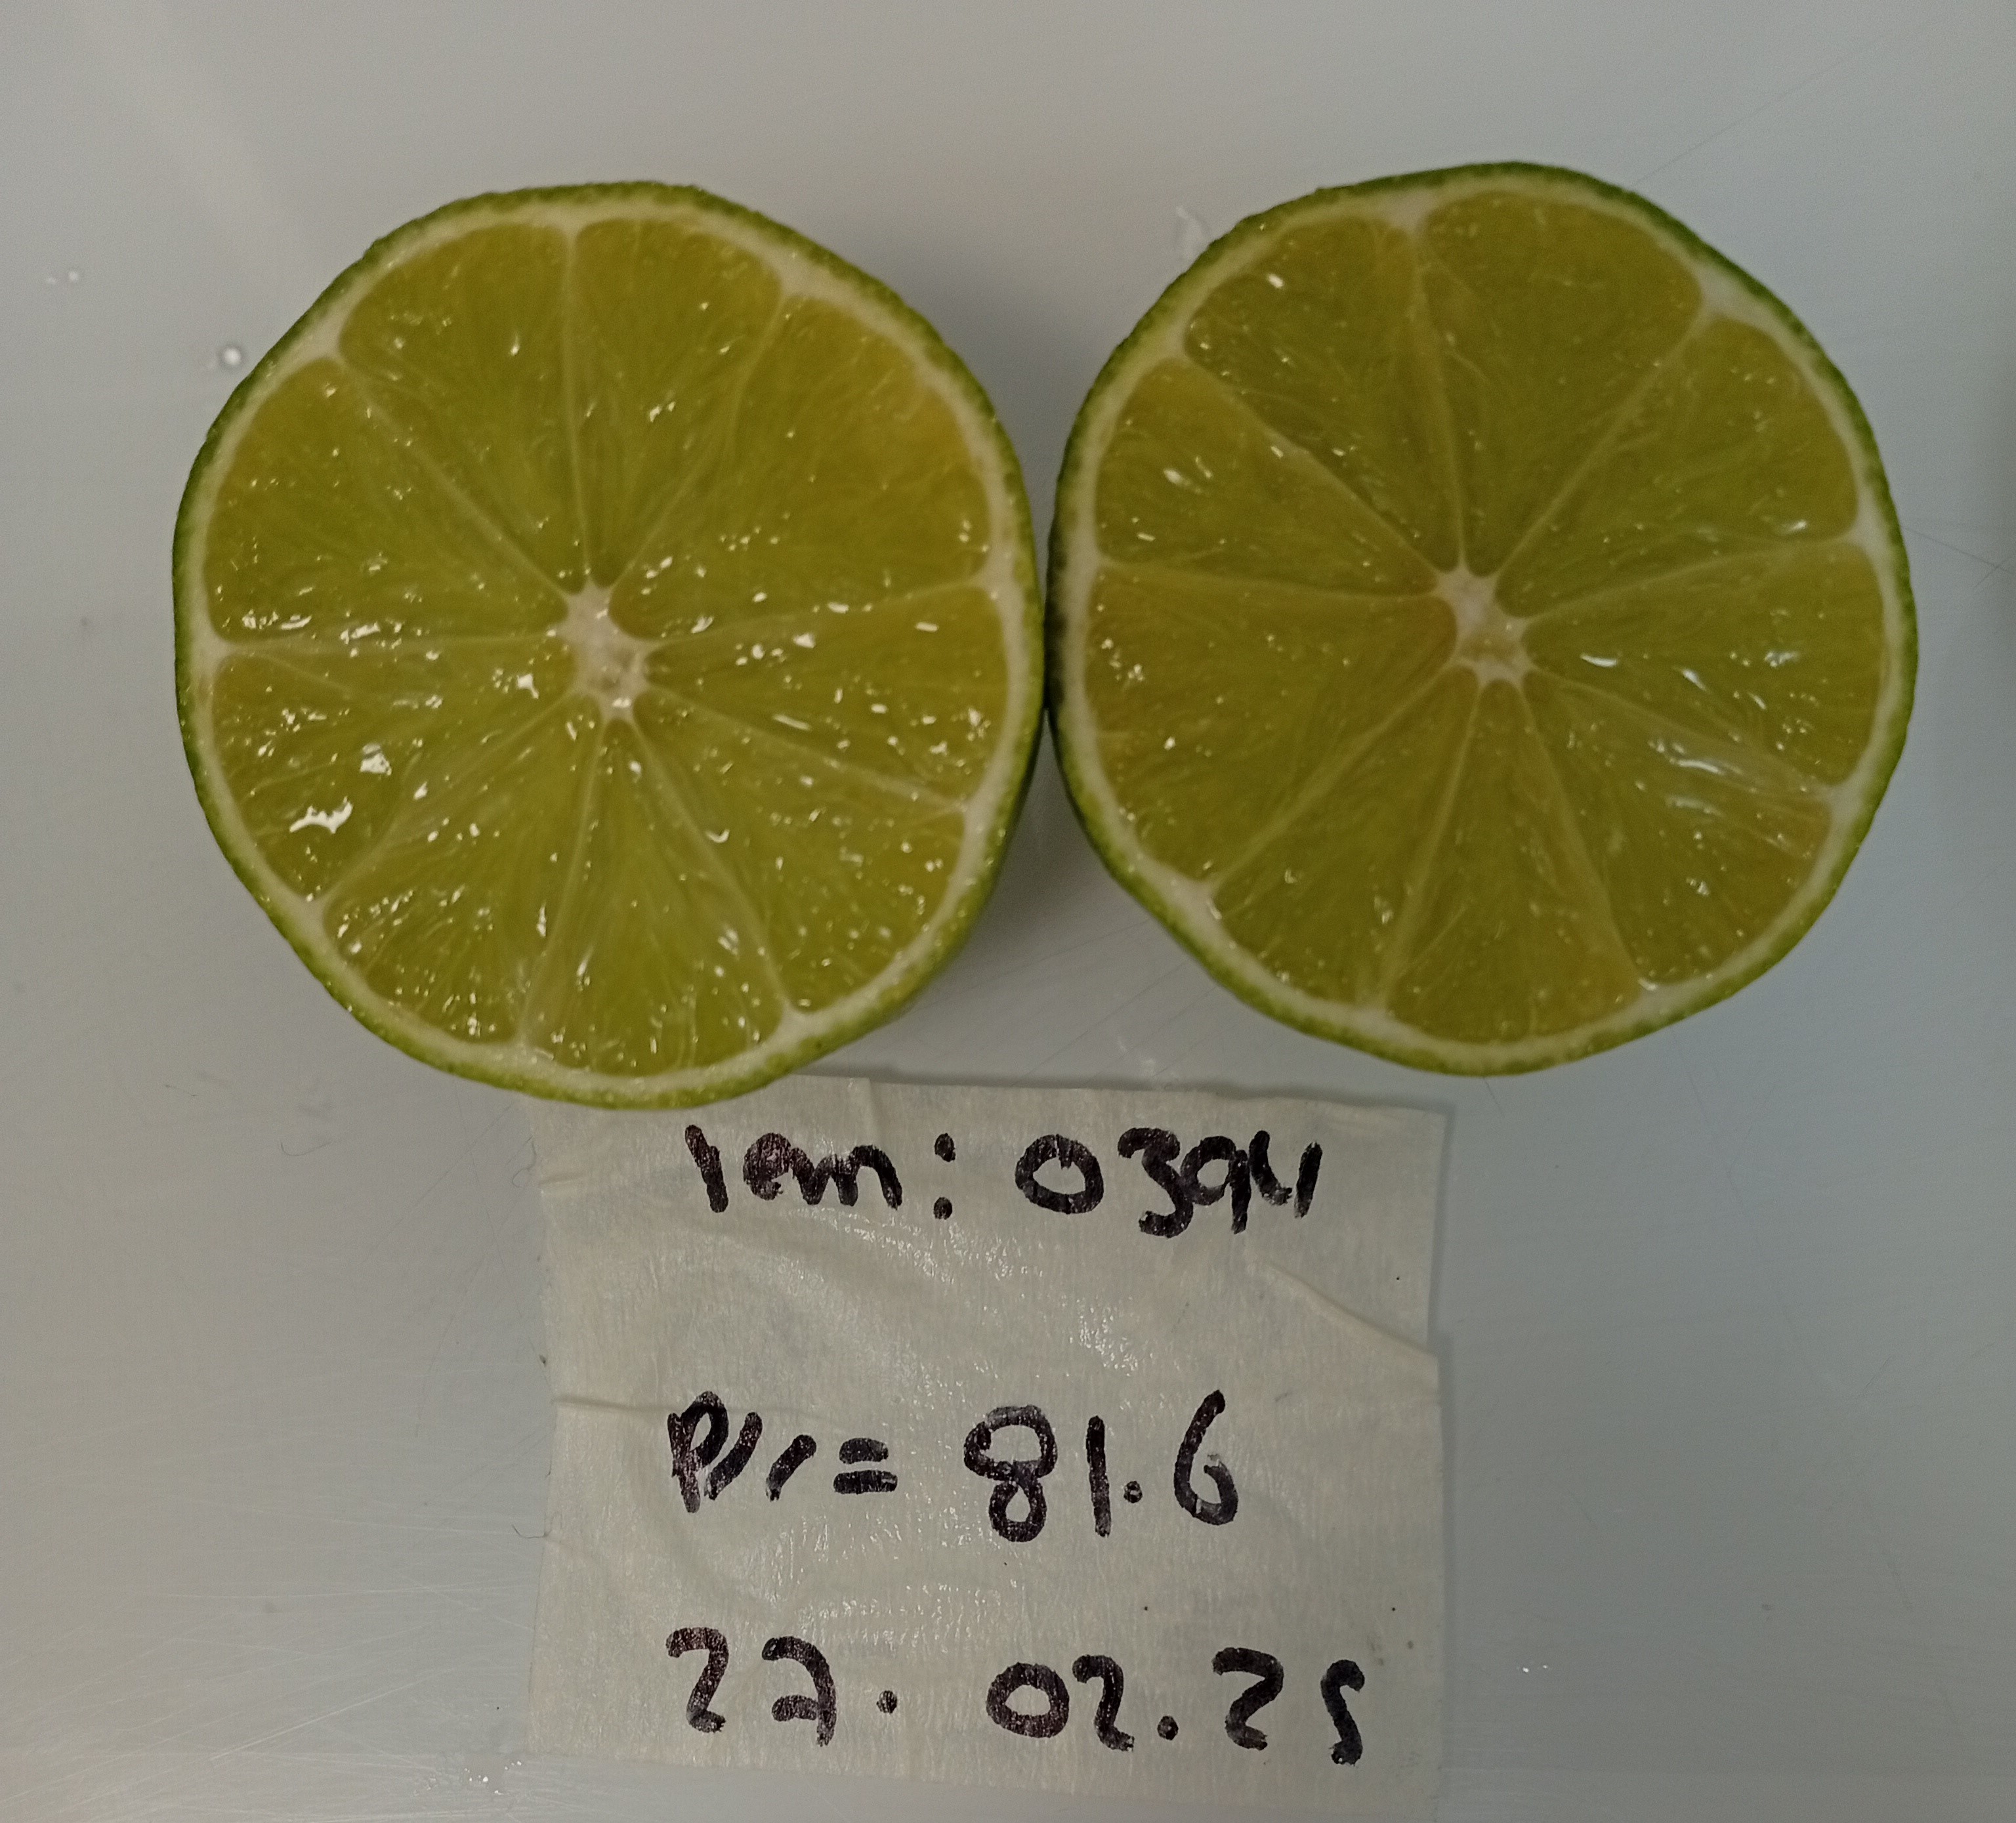 lem: 0394
Pr = 81.6
22. 02. 25